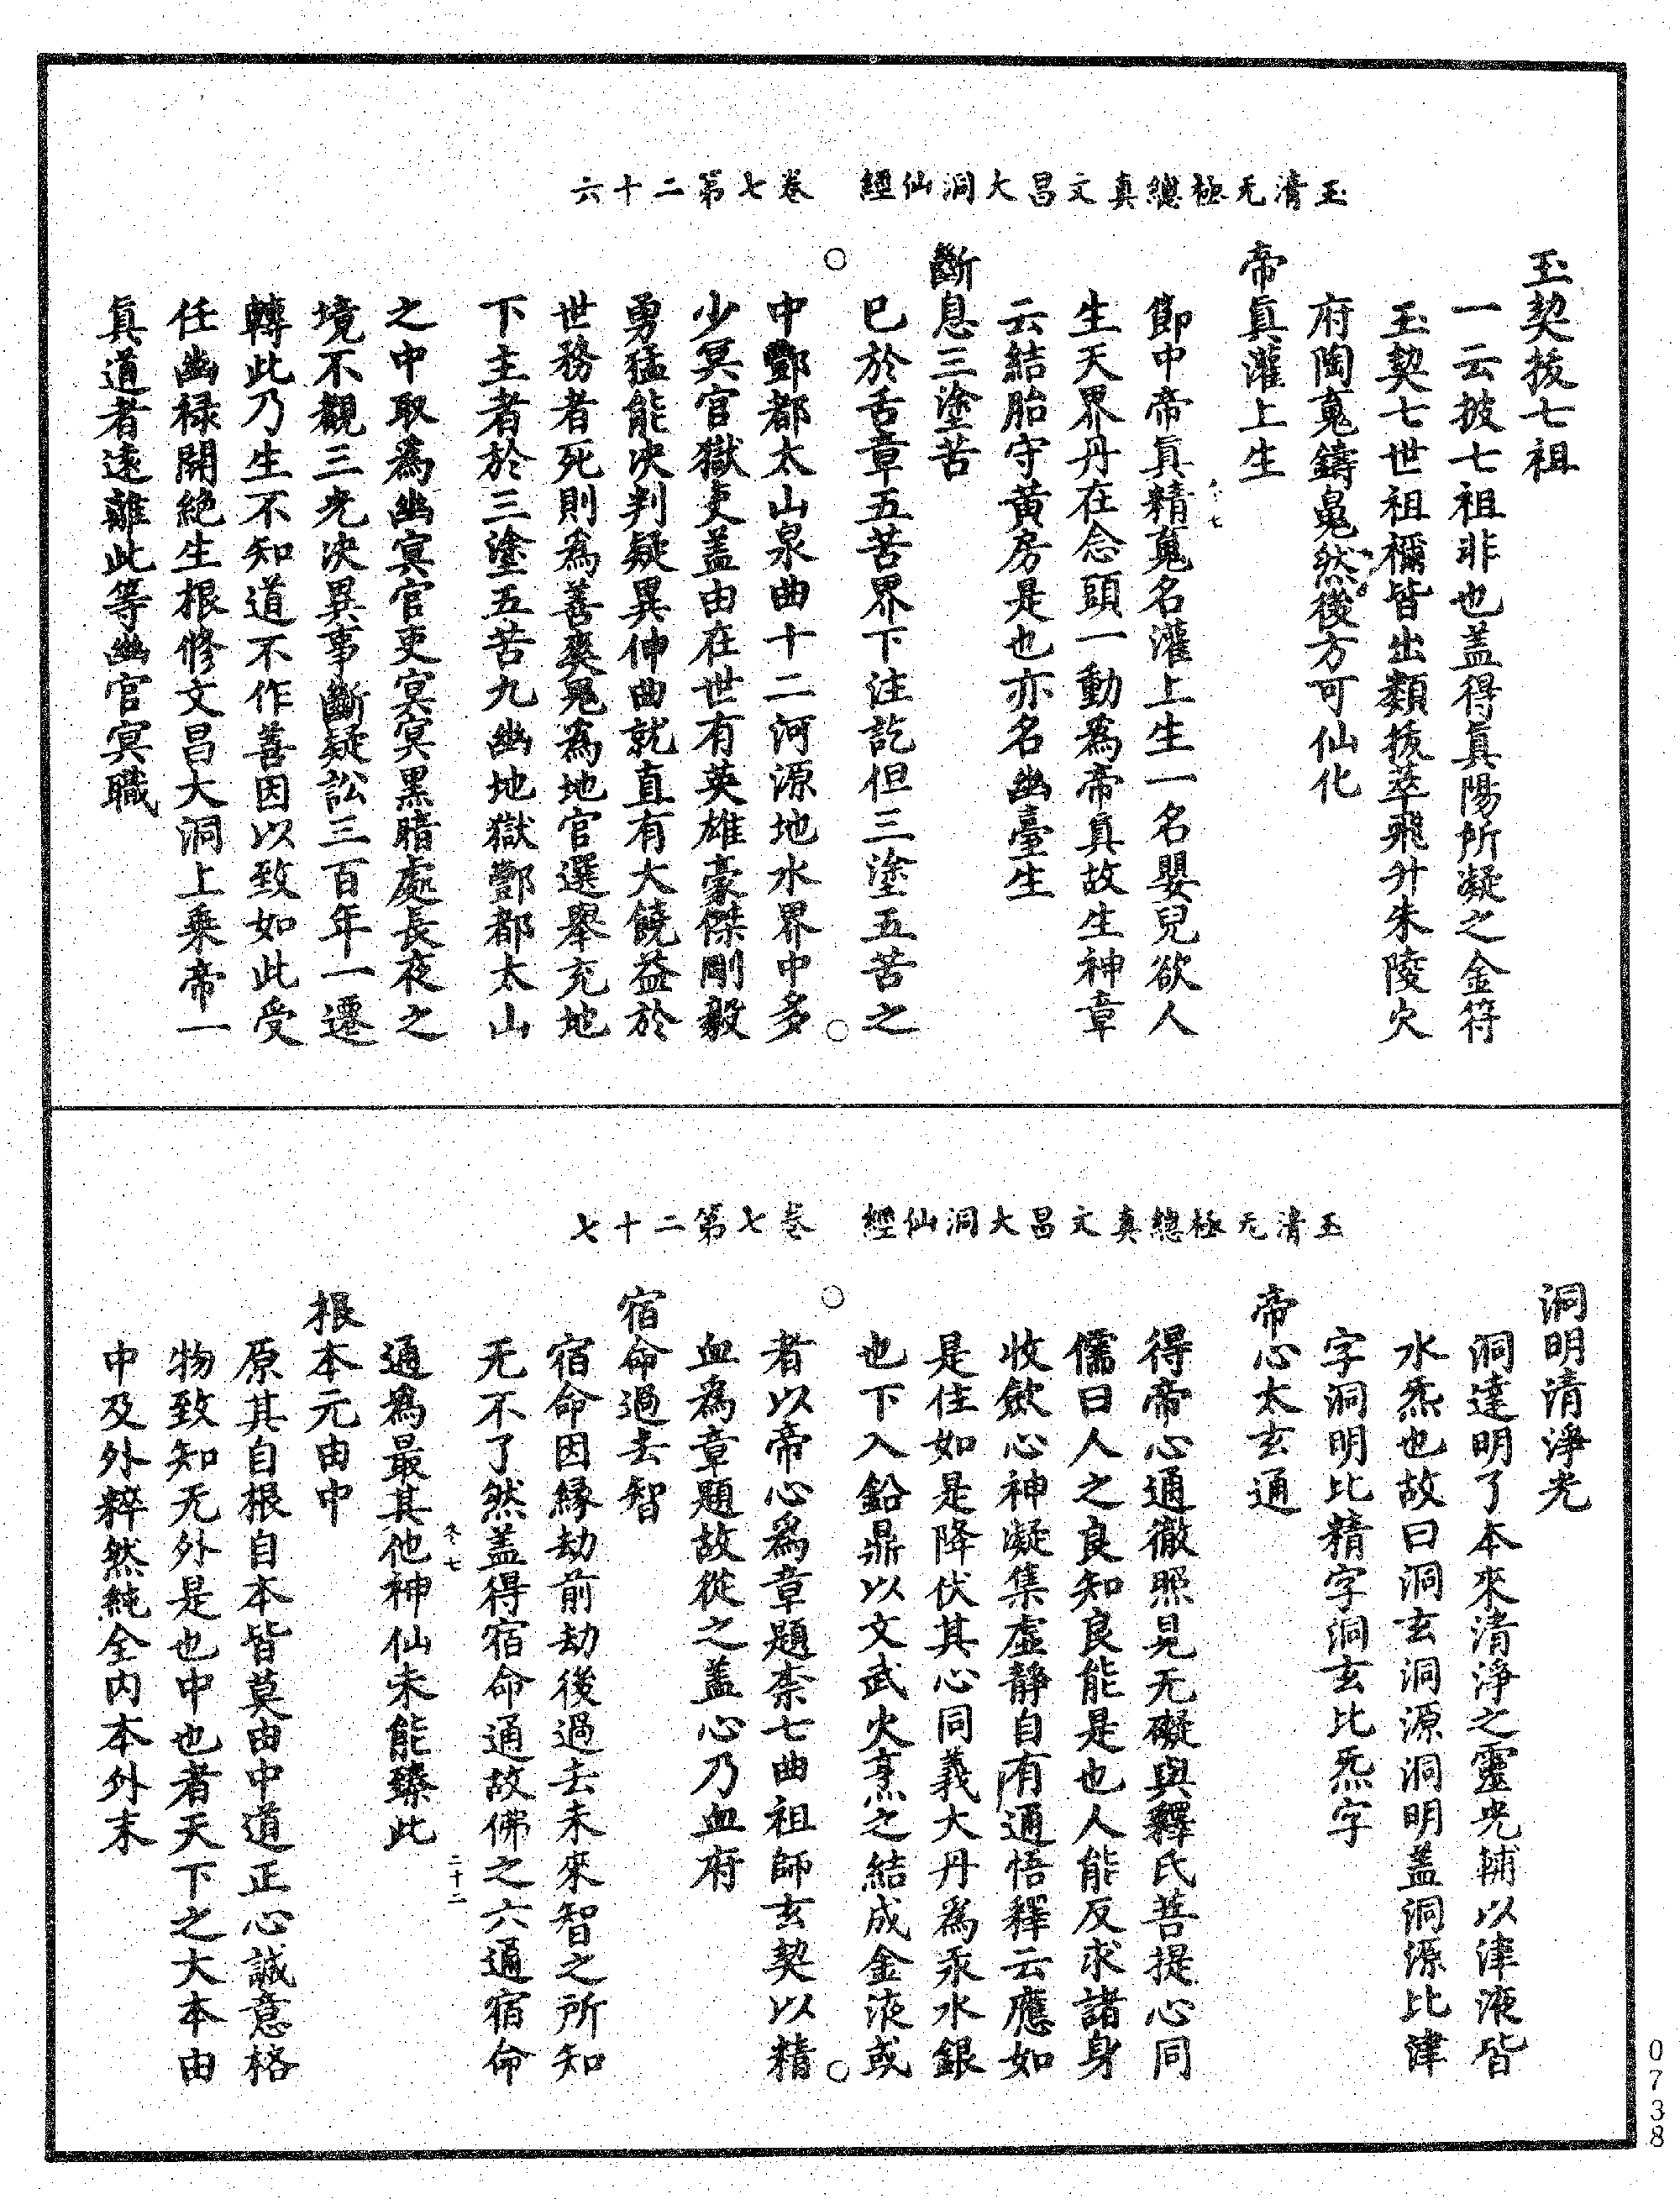 玉清无極總真文昌大洞仙經　卷七第二十六
玉契拔七祖
一云披七祖非也盖得真陽所凝之金符
玉契七世祖禰皆出類拔萃飛升朱陵火
府陶䰟鑄䰟然後方可仙化
帝真灌上生
節中帝真精䰟名灌上生一名嬰兒欲人
生天界丹在念頭一動為帝真故生神章
云結胎守黃房是也亦名幽臺生
斷息三塗苦
巳於舌章五苦界下注訖但三塗五苦之
中酆都太山泉曲十二河源地水界中多
少冥官獄吏盖由在世有英雄豪傑剛毅
勇猛能决判疑異伸曲就直有大饒益於
世務者死則為善爽鬼為地官選舉充地
下主者於三塗五苦九幽地獄酆都太山
之中取為幽冥官吏冥冥黑暗處長夜之
境不覩三光决異事斷疑訟三百年一遷
轉此乃生不知道不作善因以致如此受
任幽祿開絶生根修文昌大洞上乘帝一
真道者遠離此等幽官冥職
玉清无極總真文昌大洞仙經　卷七第二十七
洞明清淨光
洞達明了本來清淨之靈光輔以津液皆
水炁也故曰洞玄洞源洞明盖洞源比津
字洞明比精字洞玄比炁字
帝心太玄通
得帝心通徹照見无礙與釋氏菩提心同
儒曰人之良知良能是也人能反求諸身
收斂心神凝集虛靜自有通悟釋云應如
是住如是降伏其心同義大丹為汞水銀
也下入鉛鼎以文武火烹之結成金液或
者以帝心為章題柰七曲祖師玄契以精
血為章題故從之盖心乃血府
宿命過去智
宿命因緣劫前劫後過去未來智之所知
无不了然盖得宿命通故佛之六通宿命
通為最其他神仙未能臻此
二十二
根本元由中
原其自根自本皆莫由中道正心誠意格
物致知无外是也中也者天下之大本由
中及外粹然純全內本外末
0738